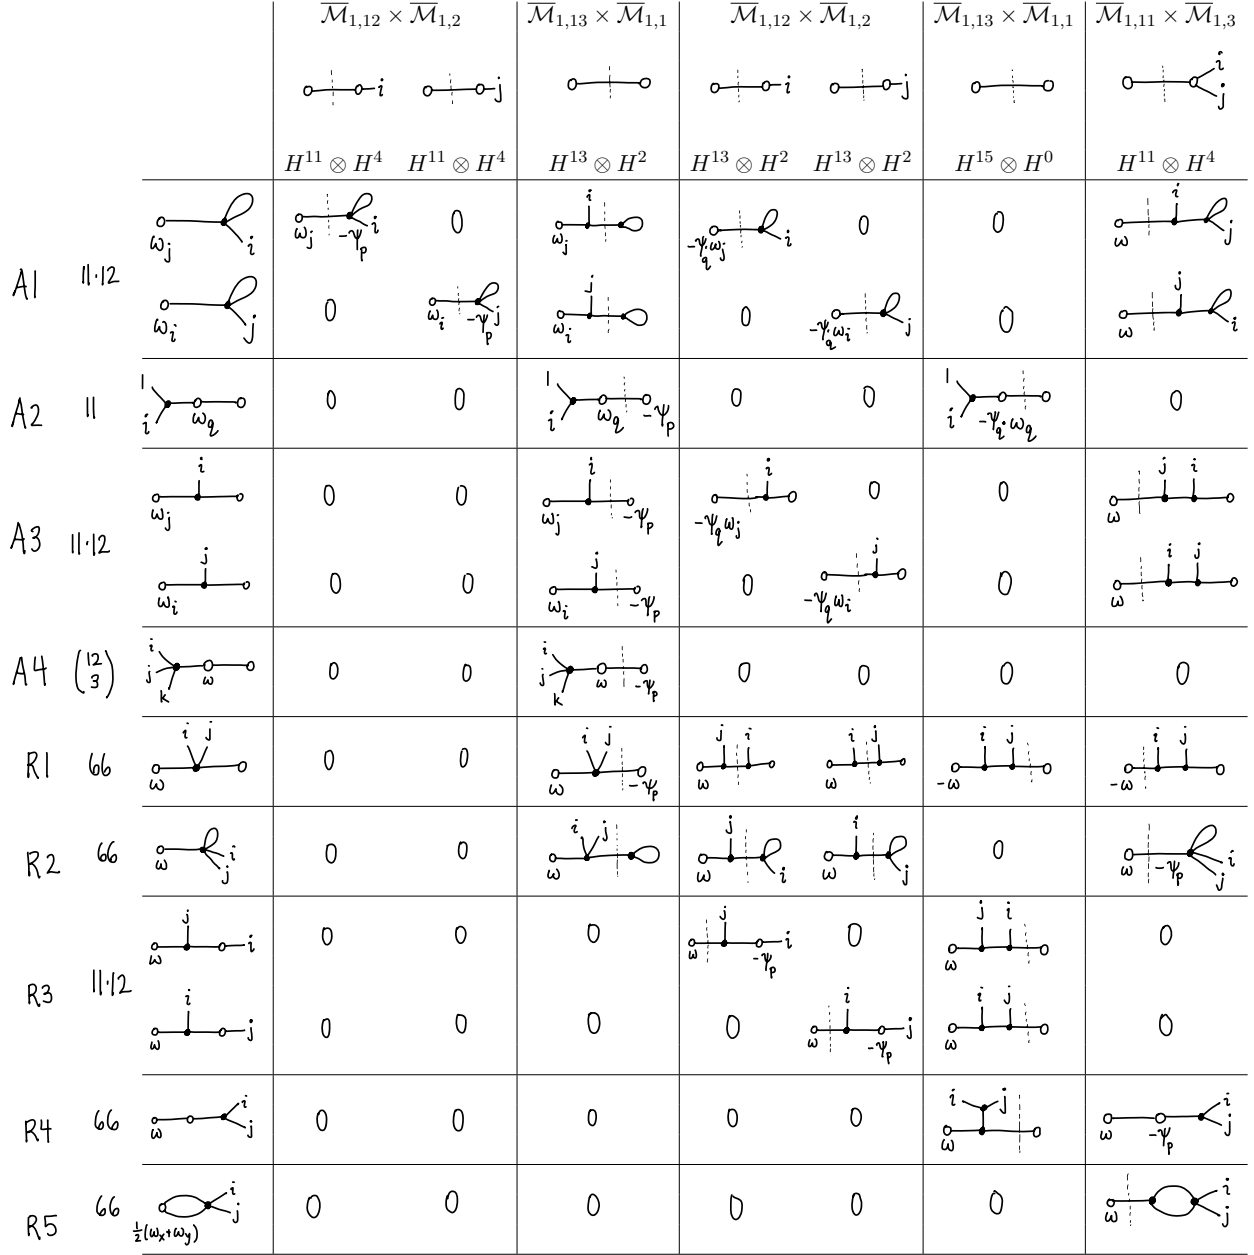 $\overline{\mathcal{M}}_{1,12} \times \overline{\mathcal{M}}_{1,2}$ $\overline{\mathcal{M}}_{1,13} \times \overline{\mathcal{M}}_{1,1}$ $\overline{\mathcal{M}}_{1,12} \times \overline{\mathcal{M}}_{1,2}$ $\overline{\mathcal{M}}_{1,13} \times \overline{\mathcal{M}}_{1,1}$ $\overline{\mathcal{M}}_{1,11} \times \overline{\mathcal{M}}_{1,3}$
i j i j i j
H^{11} ⊗ H^4 H^{11} ⊗ H^4 H^{13} ⊗ H^2 H^{13} ⊗ H^2 H^{13} ⊗ H^2 H^{15} ⊗ H^0 H^{11} ⊗ H^4
A1 11·12
ω_j i ω_j -ψ_p i 0 i ω_j -ψ_q·ω_j i 0 0 ω i j
ω_i j 0 ω_i -ψ_p j j ω_i 0 -ψ_q·ω_i j 0 ω j i
A2 11 1 i ω_q 0 0 1 i ω_q -ψ_p 0 0 1 i -ψ_q·ω_q 0
A3 11·12
i ω_j 0 0 i ω_j -ψ_p i -ψ_q ω_j 0 0 j i ω
j ω_i 0 0 j ω_i -ψ_p 0 j -ψ_q ω_i 0 i j ω
A4 (12 3) i j k ω 0 0 i j k ω -ψ_p 0 0 0 0
R1 66 i j ω 0 0 i j ω -ψ_p j i ω i j ω i j -ω i j -ω
R2 66 ω i j 0 0 i j ω j ω i i ω j 0 ω -ψ_p i j
R3 11·12
j ω i 0 0 0 j ω -ψ_p i 0 j i ω 0
i ω j 0 0 0 0 i ω -ψ_p j i j ω 0
R4 66 ω i j 0 0 0 0 0 i j ω ω -ψ_p i j
R5 66 ½(ω_x+ω_y) i j 0 0 0 0 0 0 ω i j